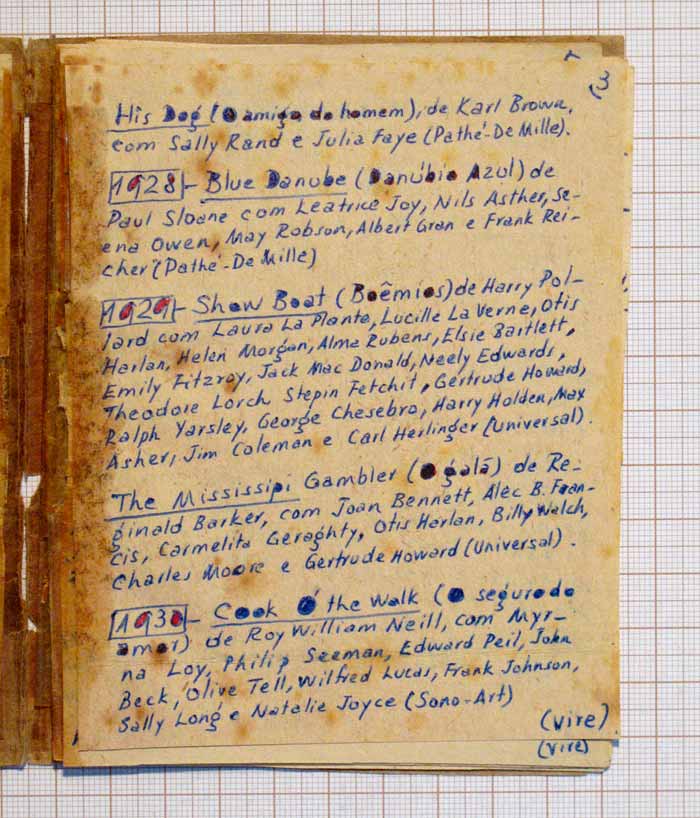 (3
His Dog (O amigo do homem), de Karl Brown,
com Sally Rand e Julia Faye (Pathé-De Mille).
1928 - Blue Danube (Danúbio Azul) de
Paul Sloane com Leatrice Joy, Nils Asther, Se-
ena Owen, May Robson, Albert Gran e Frank Rei-
cher (Pathé-De Mille)
1929 - Show Boat (Boêmios) de Harry Pol-
lard com Laura La Plante, Lucille La Verne, Otis
Harlan, Helen Morgan, Alma Rubens, Elsie Bartlett,
Emily Fitzroy, Jack Mac Donald, Neely Edwards,
Theodore Lorch Stepin Fetchit, Gertrude Howard,
Ralph Yarsley, George Chesebro, Harry Holden, Max
Asher, Jim Coleman e Carl Herlinger (Universal).
The Mississipi Gambler (O galã) de Re-
ginald Barker, com Joan Bennett, Alec B. Fran-
cis, Carmelita Geraghty, Otis Harlan, Billy Welch,
Charles Moore e Gertrude Howard (Universal).
1930 - Cook O' the Walk (O seguro do
amor) de Roy William Neill, com Myr-
na Loy, Philip Seeman, Edward Peil, John
Beck, Olive Tell, Wilfred Lucas, Frank Johnson,
Sally Long e Natalie Joyce (Sono-Art)
(vire)
(vire)